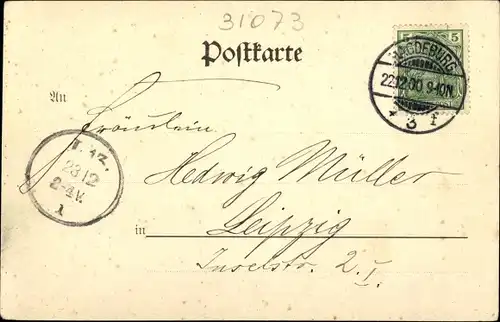 31073
Postkarte
5 5
MAGDEBURG
22.12.00. 9-10N.
* 3 f
An
Fräulein
23 12
2-4V.
1
Hedwig Müller
in Leipzig
Inselstr. 2. I.